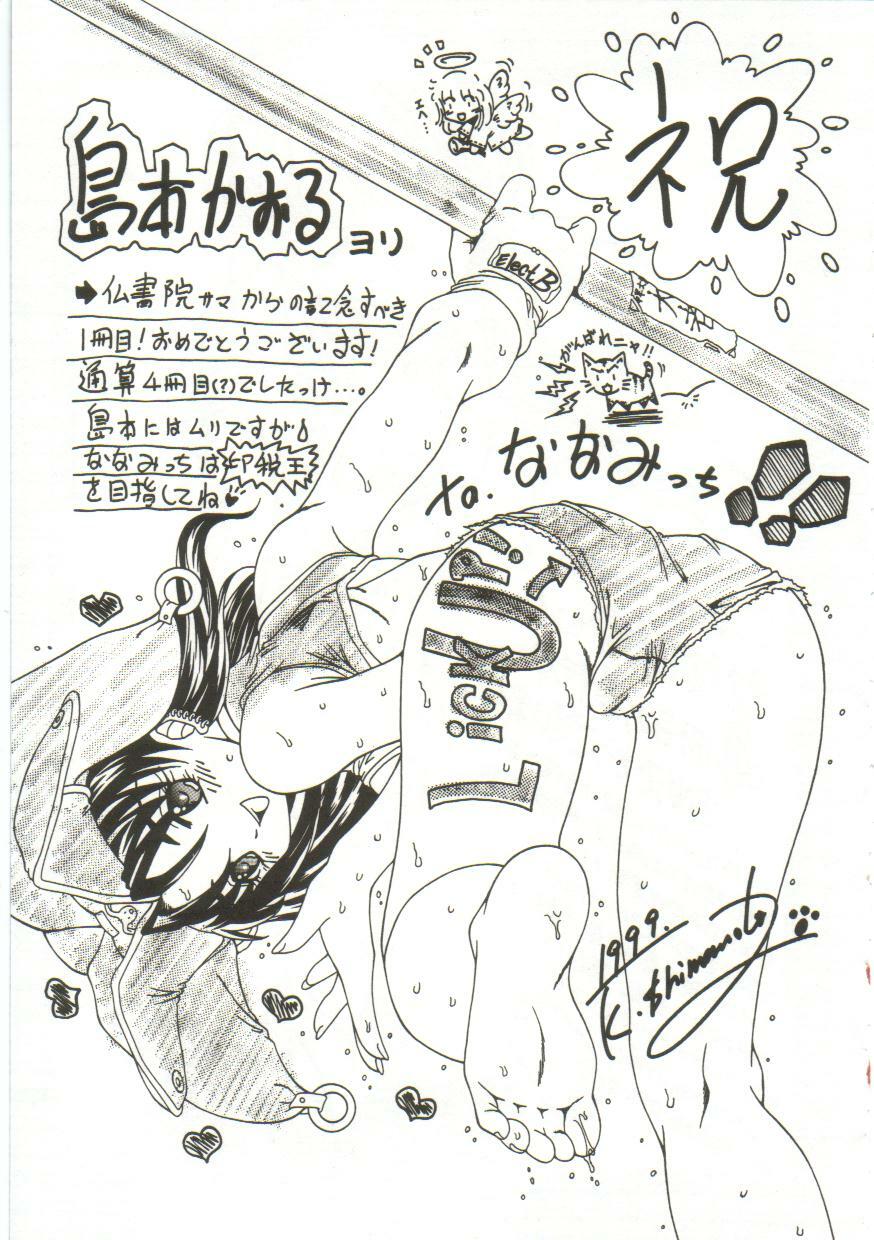 祝
島本かおる
ヨリ
➡仏書院サマからの記念すべき
1冊目!おめでとうございます!
通算4冊目(?)でしたっけ…。
島本にはムリですが
ななみっちは印税王
を目指してね♥
Elect.B
がんばれニャ!!
to.ななみっち
Lick UP!
1999.
K.Shimamoto